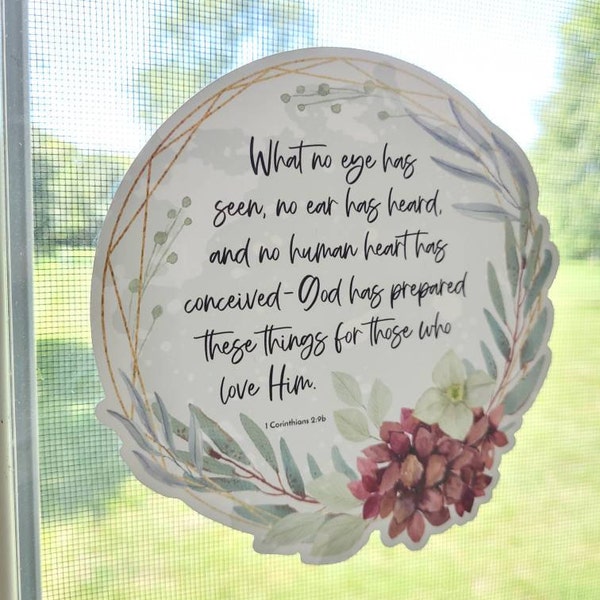 What no eye has
seen, no ear has heard,
and no human heart has
conceived-God has prepared
these things for those who
love Him.
1 Corinthians 2:9b